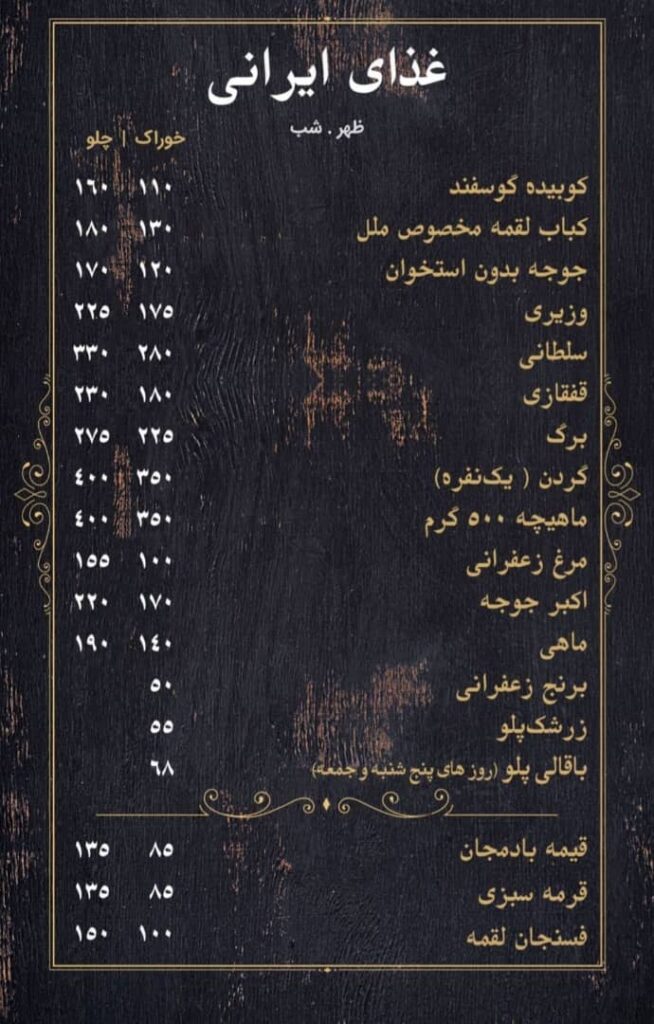 غذای ایرانی
ظهر . شب
خوراک | چلو
کوبیده گوسفند ۱۱۰ ۱۶۰
کباب لقمه مخصوص ملل ۱۳۰ ۱۸۰
جوجه بدون استخوان ۱۲۰ ۱۷۰
وزیری ۱۷۵ ۲۲۵
سلطانی ۲۸۰ ۳۳۰
قفقازی ۱۸۰ ۲۳۰
برگ ۲۲۵ ۲۷۵
گردن ( یک‌نفره) ۳۵۰ ۴۰۰
ماهیچه ۵۰۰ گرم ۳۵۰ ۴۰۰
مرغ زعفرانی ۱۰۰ ۱۵۵
اکبر جوجه ۱۷۰ ۲۲۰
ماهی ۱۴۰ ۱۹۰
برنج زعفرانی ۵۰
زرشک‌پلو ۵۵
باقالی پلو (روز های پنج شنبه و جمعه) ۶۸
قیمه بادمجان ۸۵ ۱۳۵
قرمه سبزی ۸۵ ۱۳۵
فسنجان لقمه ۱۰۰ ۱۵۰